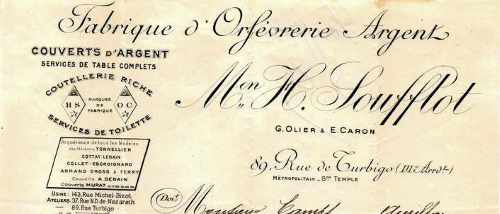 Fabrique d'Orfèvrerie Argent
COUVERTS D'ARGENT
SERVICES DE TABLE COMPLETS
COUTELLERIE RICHE
HS
MARQUES DE FABRIQUE
OC
SERVICES DE TOILETTE
Mon H. Soufflot
G. OLIER & E. CARON
Acquéreurs de tous les Modèles
des Maisons TONNELLIER
COTTAT LEBRUN
COLLET-ESCROIGNARD
ARMAND GROSS & FERRY
Couverts A. DEBAIN
Couverts MURAT
89, Rue de Turbigo (IIIe Arrondt.)
MÉTROPOLITAIN - Son TEMPLE
USINE: 143, Rue Michel-Bizot,
ATELIERS: 37, Rue N.D. de Nazareth
89, Rue Turbigo
Doit
Monsieur